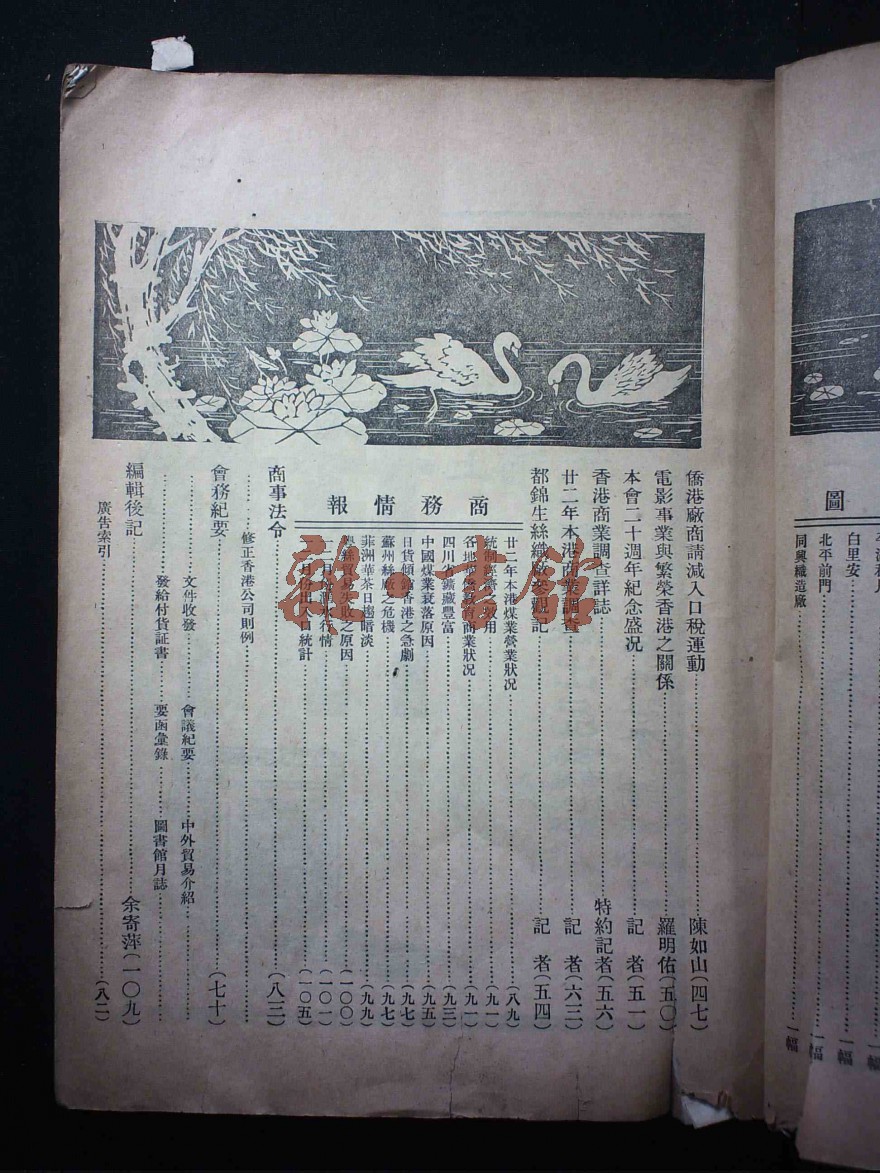 圖
白里安 一幅
北平前門 一幅
同興織造廠 一幅
僑港廠商請減入口稅運動 陳如山(四七)
電影事業與繁榮香港之關係 羅明佑(五〇)
本會二十週年紀念盛況 記者(五一)
香港商業調查詳誌 特約記者(五六)
廿二年本港商業調查 記者(六三)
都錦生絲織廠參觀記 記者(五四)
商務情報
廿二年本港煤業營業狀況 (八九)
統制經濟 效用 (九一)
各地 商業狀況 (九一)
四川省鐵藏豐富 (九三)
中國煤業衰落原因 (九五)
日貨傾銷香港之急劇 (九七)
蘇州絲廠之危機 (九七)
菲洲華茶日趨暗淡 (九九)
貿易失敗之原因 (一〇〇)
行情 (一〇一)
月份出入口統計 (一〇五)
商事法令 (八三)
修正香港公司則例
會務紀要 (七十)
文件收發 會議紀要 中外貿易介紹
發給付貨証書 要函彙錄 圖書館月誌
編輯後記 余寄萍(一〇九)
廣告索引 (八二)